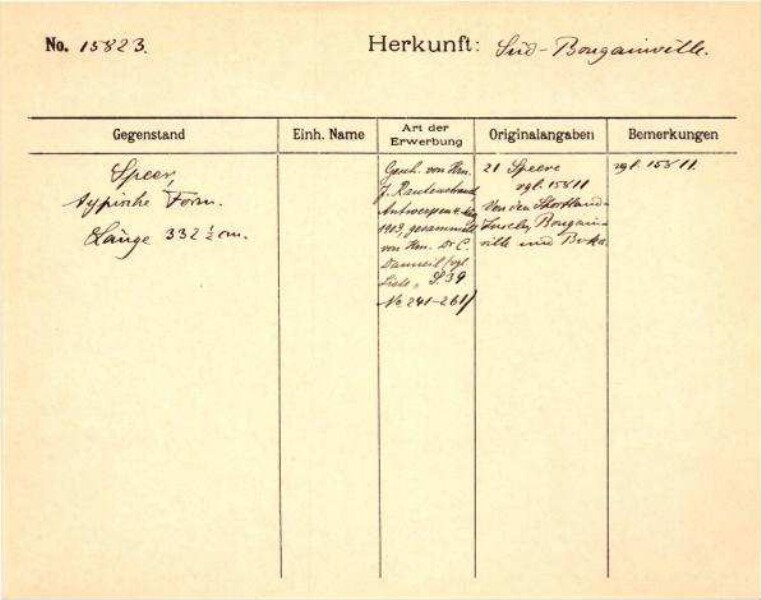 No. 15823.
Herkunft: Süd-Bougainville.
Gegenstand
Einh. Name
Art der Erwerbung
Originalangaben
Bemerkungen
Speer,
typische Form.
Länge 332 ½ cm.
Gesch. von Hrn.
J. Rautenstrauch
Antwerpen
1903, gesammelt
von Hrn. Dr C.
Danneil /vgl.
Liste, S. 39
No 241-261/
21 Speere
vgl. 15811
Von den Shortland-
Inseln, Bougain-
ville und Buka.
vgl. 15811.